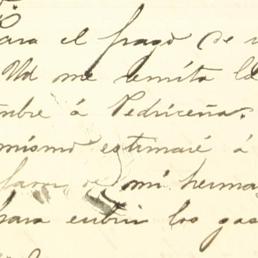 Para el pago de
Ud me remita la
mbre á Pedriceña.
mismo estimaré á
favor de mi herma
para cubrir los gas